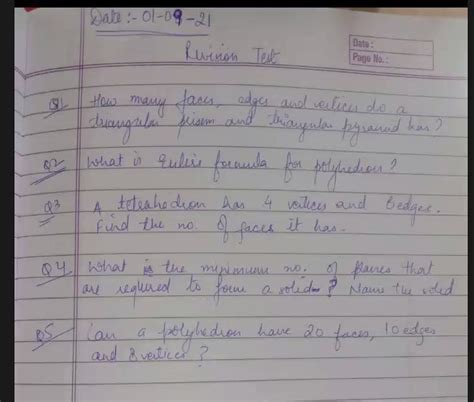 Date :- 01-09-21
Revision Test
Date :
Page No. :
Q1 How many faces, edges and vertices do a
triangular prism and triangular pyramid has?
Q2 What is Euler's formula for polyhedron?
Q3 A tetrahedron has 4 vertices and 6 edges.
Find the no. of faces it has.
Q4 What is the minimum no. of planes that
are required to form a solid? Name the solid
Q5 Can a polyhedron have 20 faces, 10 edges
and 8 vertices?